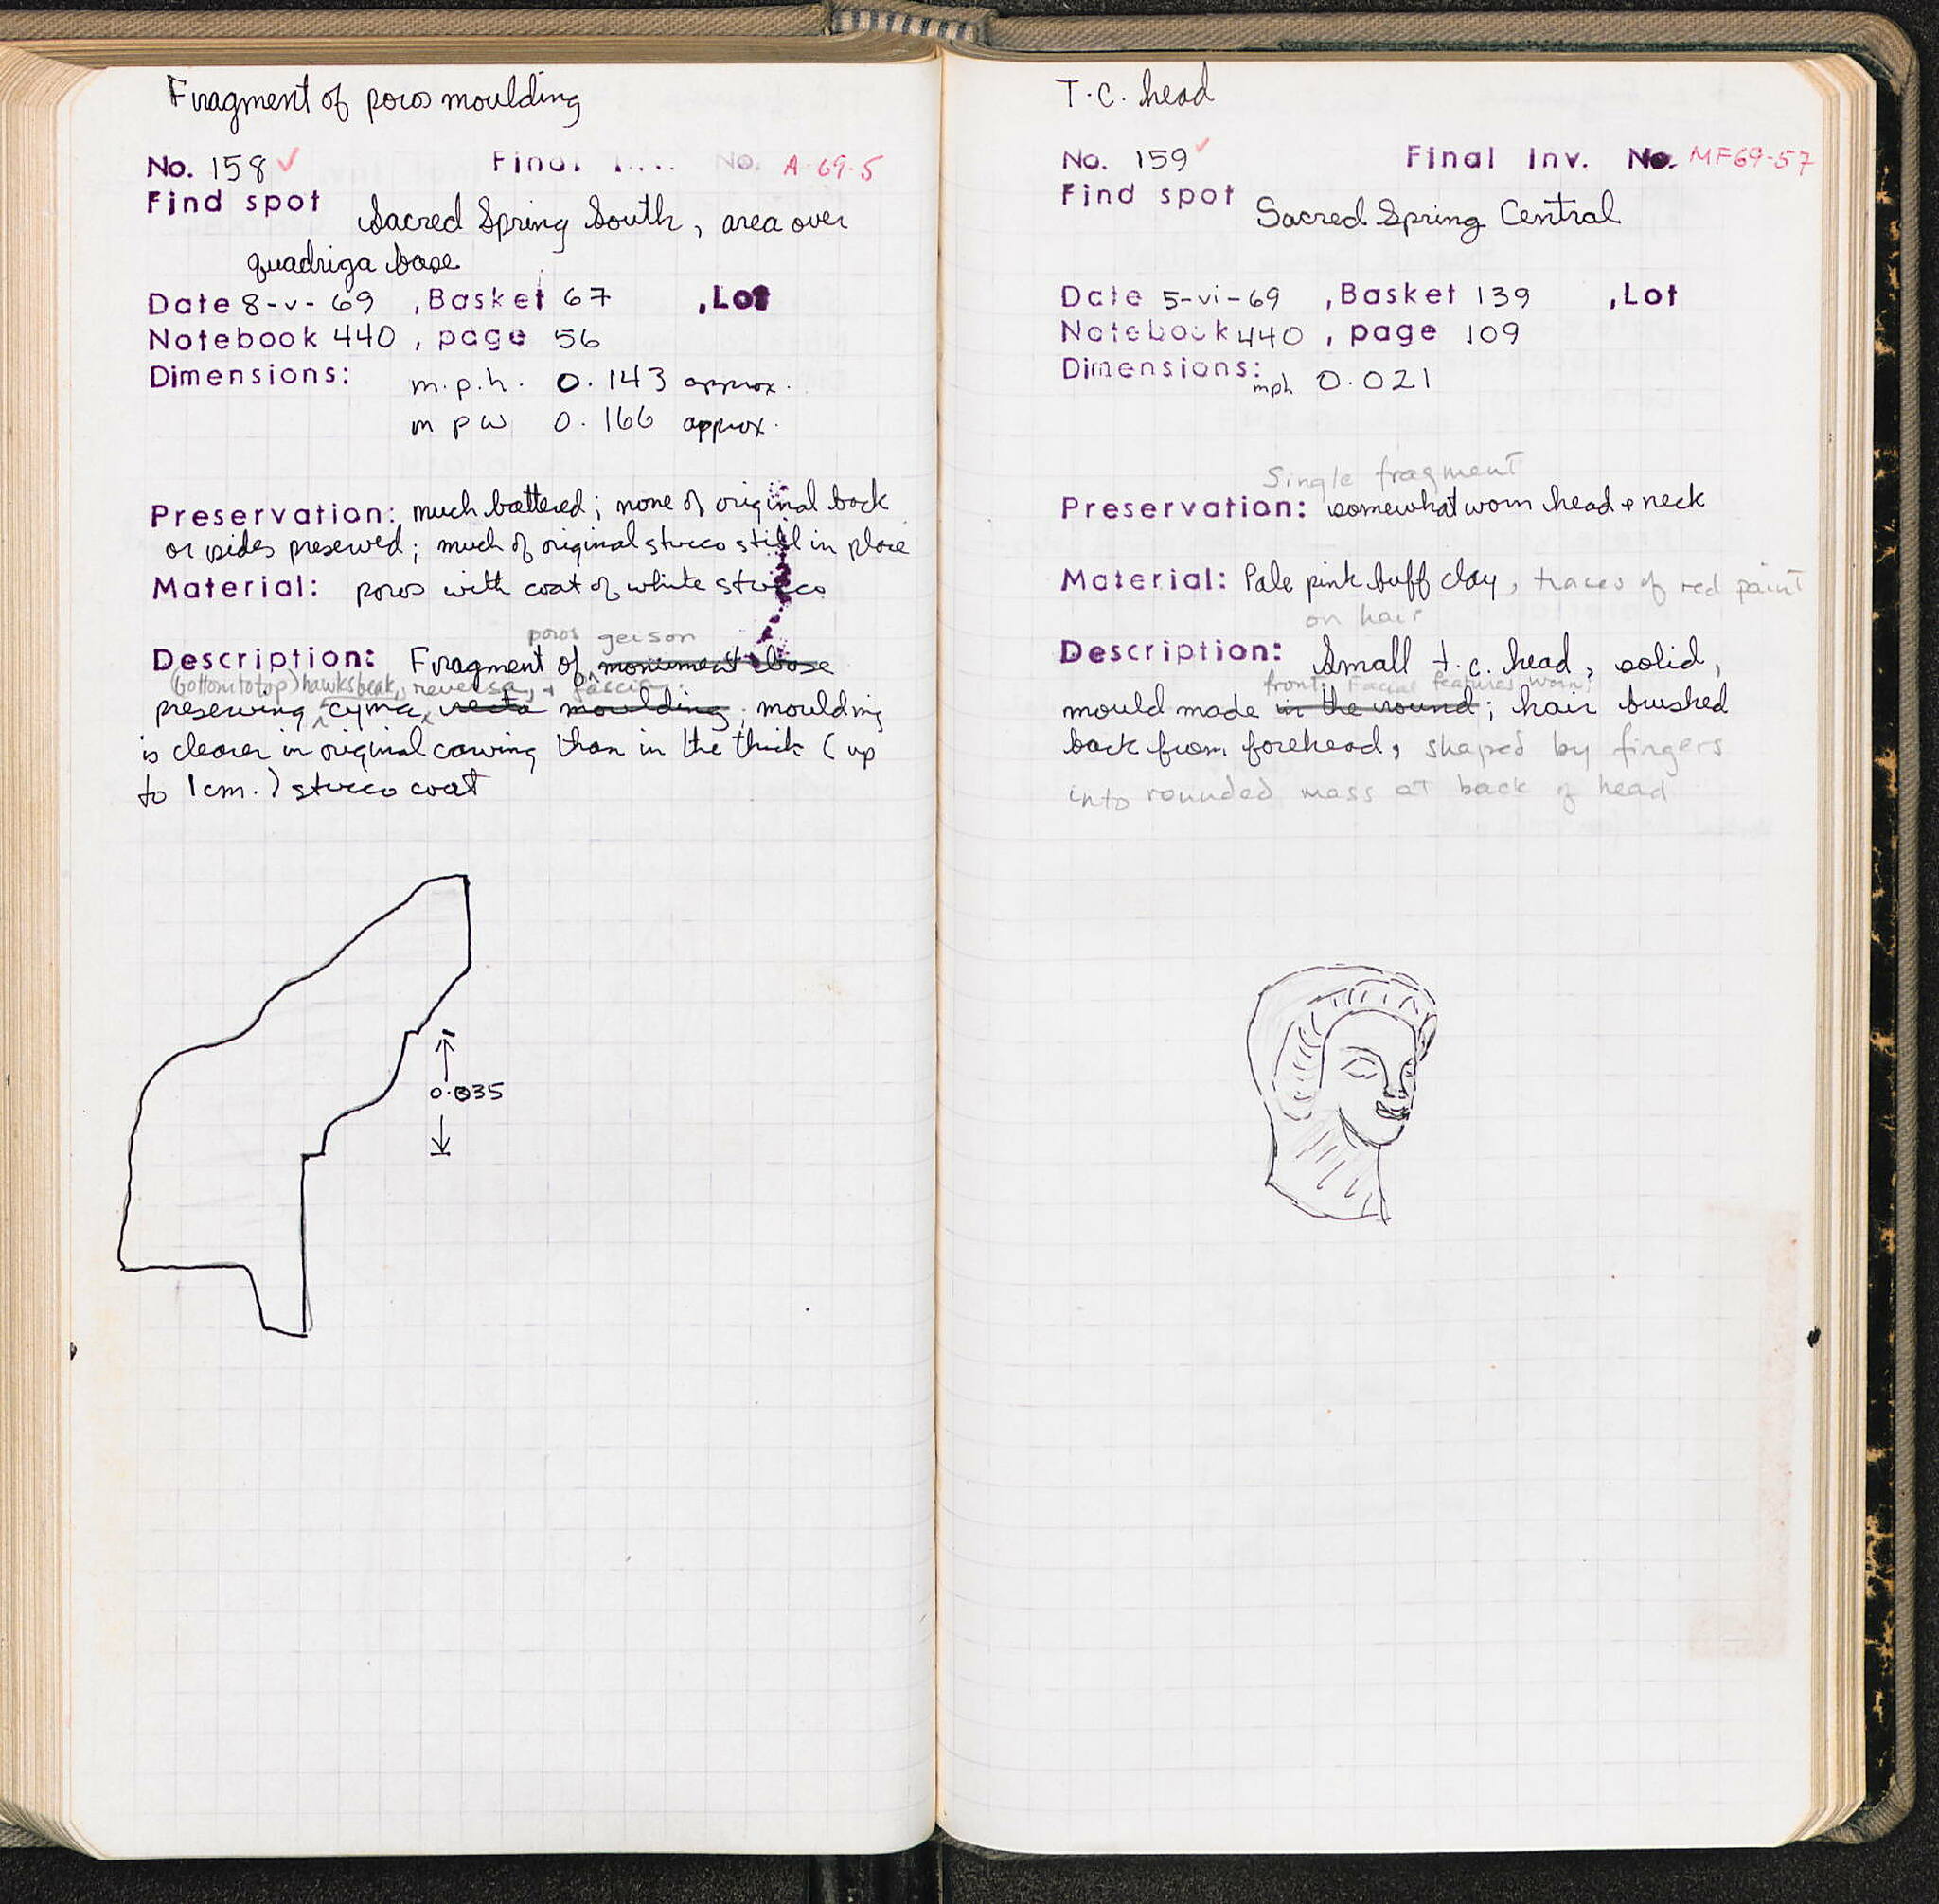 Fragment of poros moulding
No. 158 ✓ Final I... No. A-69-5
Find spot Sacred Spring South, area over
quadriga base
Date 8-v-69 , Basket 67 , Lot
Notebook 440 , page 56
Dimensions: m.p.h. 0.143 approx.
m p w 0.166 approx.
Preservation: much battered; none of original back
or sides preserved; much of original stucco still in place
Material: poros with coat of white stucco
poros geison
Description: Fragment of monument base
(bottom to top) hawksbeak, reversa, + fascia
preserving cyma recta moulding; moulding
is clearer in original carving than in the thick (up
to 1cm.) stucco coat
0.035
T.C. head
No. 159 ✓ Final Inv. No. MF69-57
Find spot Sacred Spring Central
Date 5-vi-69 , Basket 139 , Lot
Notebook 440 , page 109
Dimensions: mph 0.021
Single fragment
Preservation: somewhat worn head + neck
Material: Pale pink buff clay, traces of red paint
on hair
Description: Small t.c. head, solid,
front. Facial features worn;
mould made in the round; hair brushed
back from forehead, shaped by fingers
into rounded mass at back of head